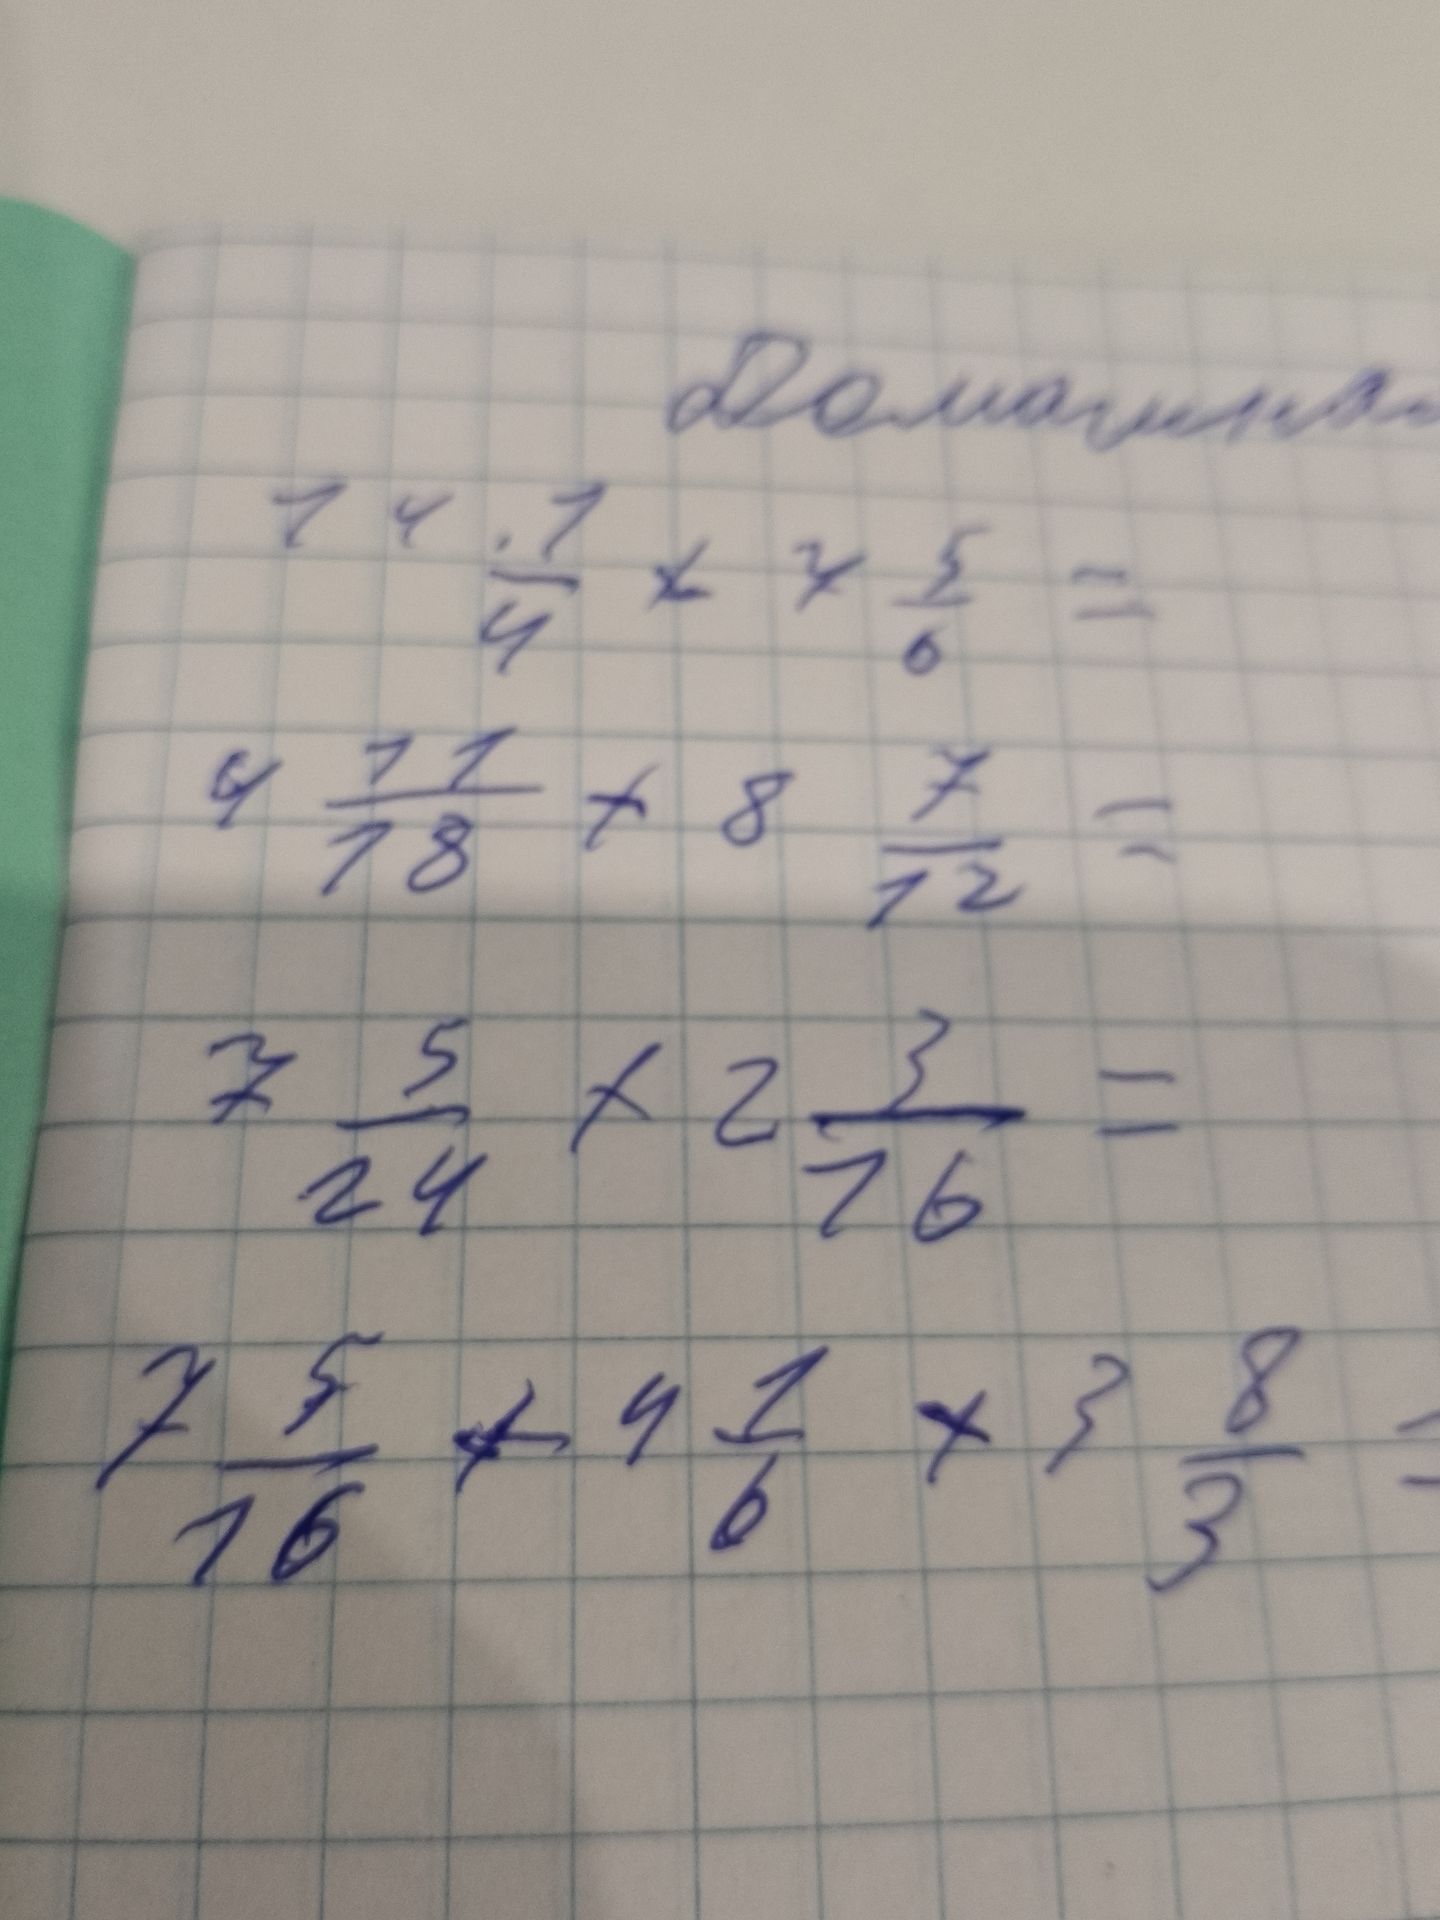 Домашна
14 1/4 × 7 5/6 =
4 11/18 + 8 7/12 =
7 5/24 × 2 3/16 =
7 5/16 + 4 1/6 × 3 8/3 =